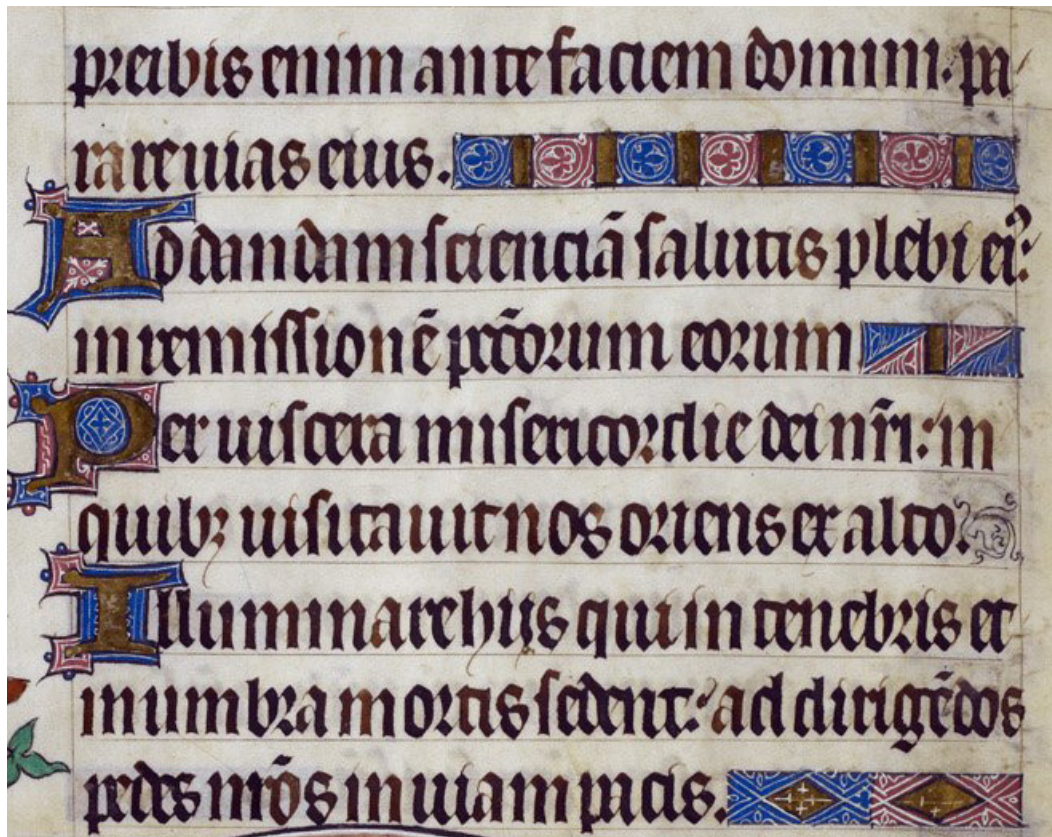 preibis enim ante faciem domini. pa
rare uias eius.
Ad dandam scienciā salutis plebi eiꝰ:
in remissionē pctō̄rum eorum
Per uiscera misericordie dei nr̄i: in
quibꝫ uisitauit nos oriens ex alto.
Illuminare hijs qui in tenebris et
in umbra mortis sedent: ad dirigēdos
pedes nrōs in uiam pacis.